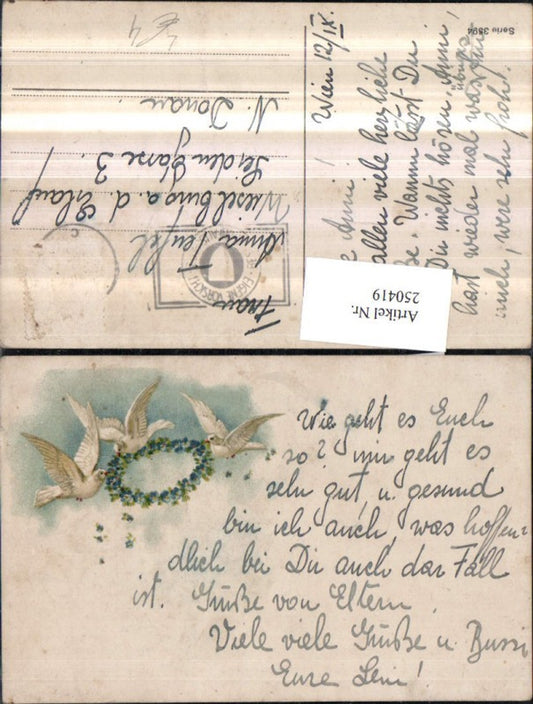 Serie 3594
Wien 12/IX.
Anni!
allen viele herzliche
Warum lässt Du
Du nichts hören, Anni!
hast wieder mal was
mich, wäre sehr froh!
Frau
Anna Teufel
Wieselburg a. d. Erlauf
3.
N. Donau
Artikel Nr.
250419
Wie geht es Euch
so? mir geht es
sehr gut, u. gesund
bin ich auch, was hoffen=
dlich bei Dir auch der Fall
ist. Grüße von Eltern
Viele viele Grüße u. Bussi
Eure Leni!